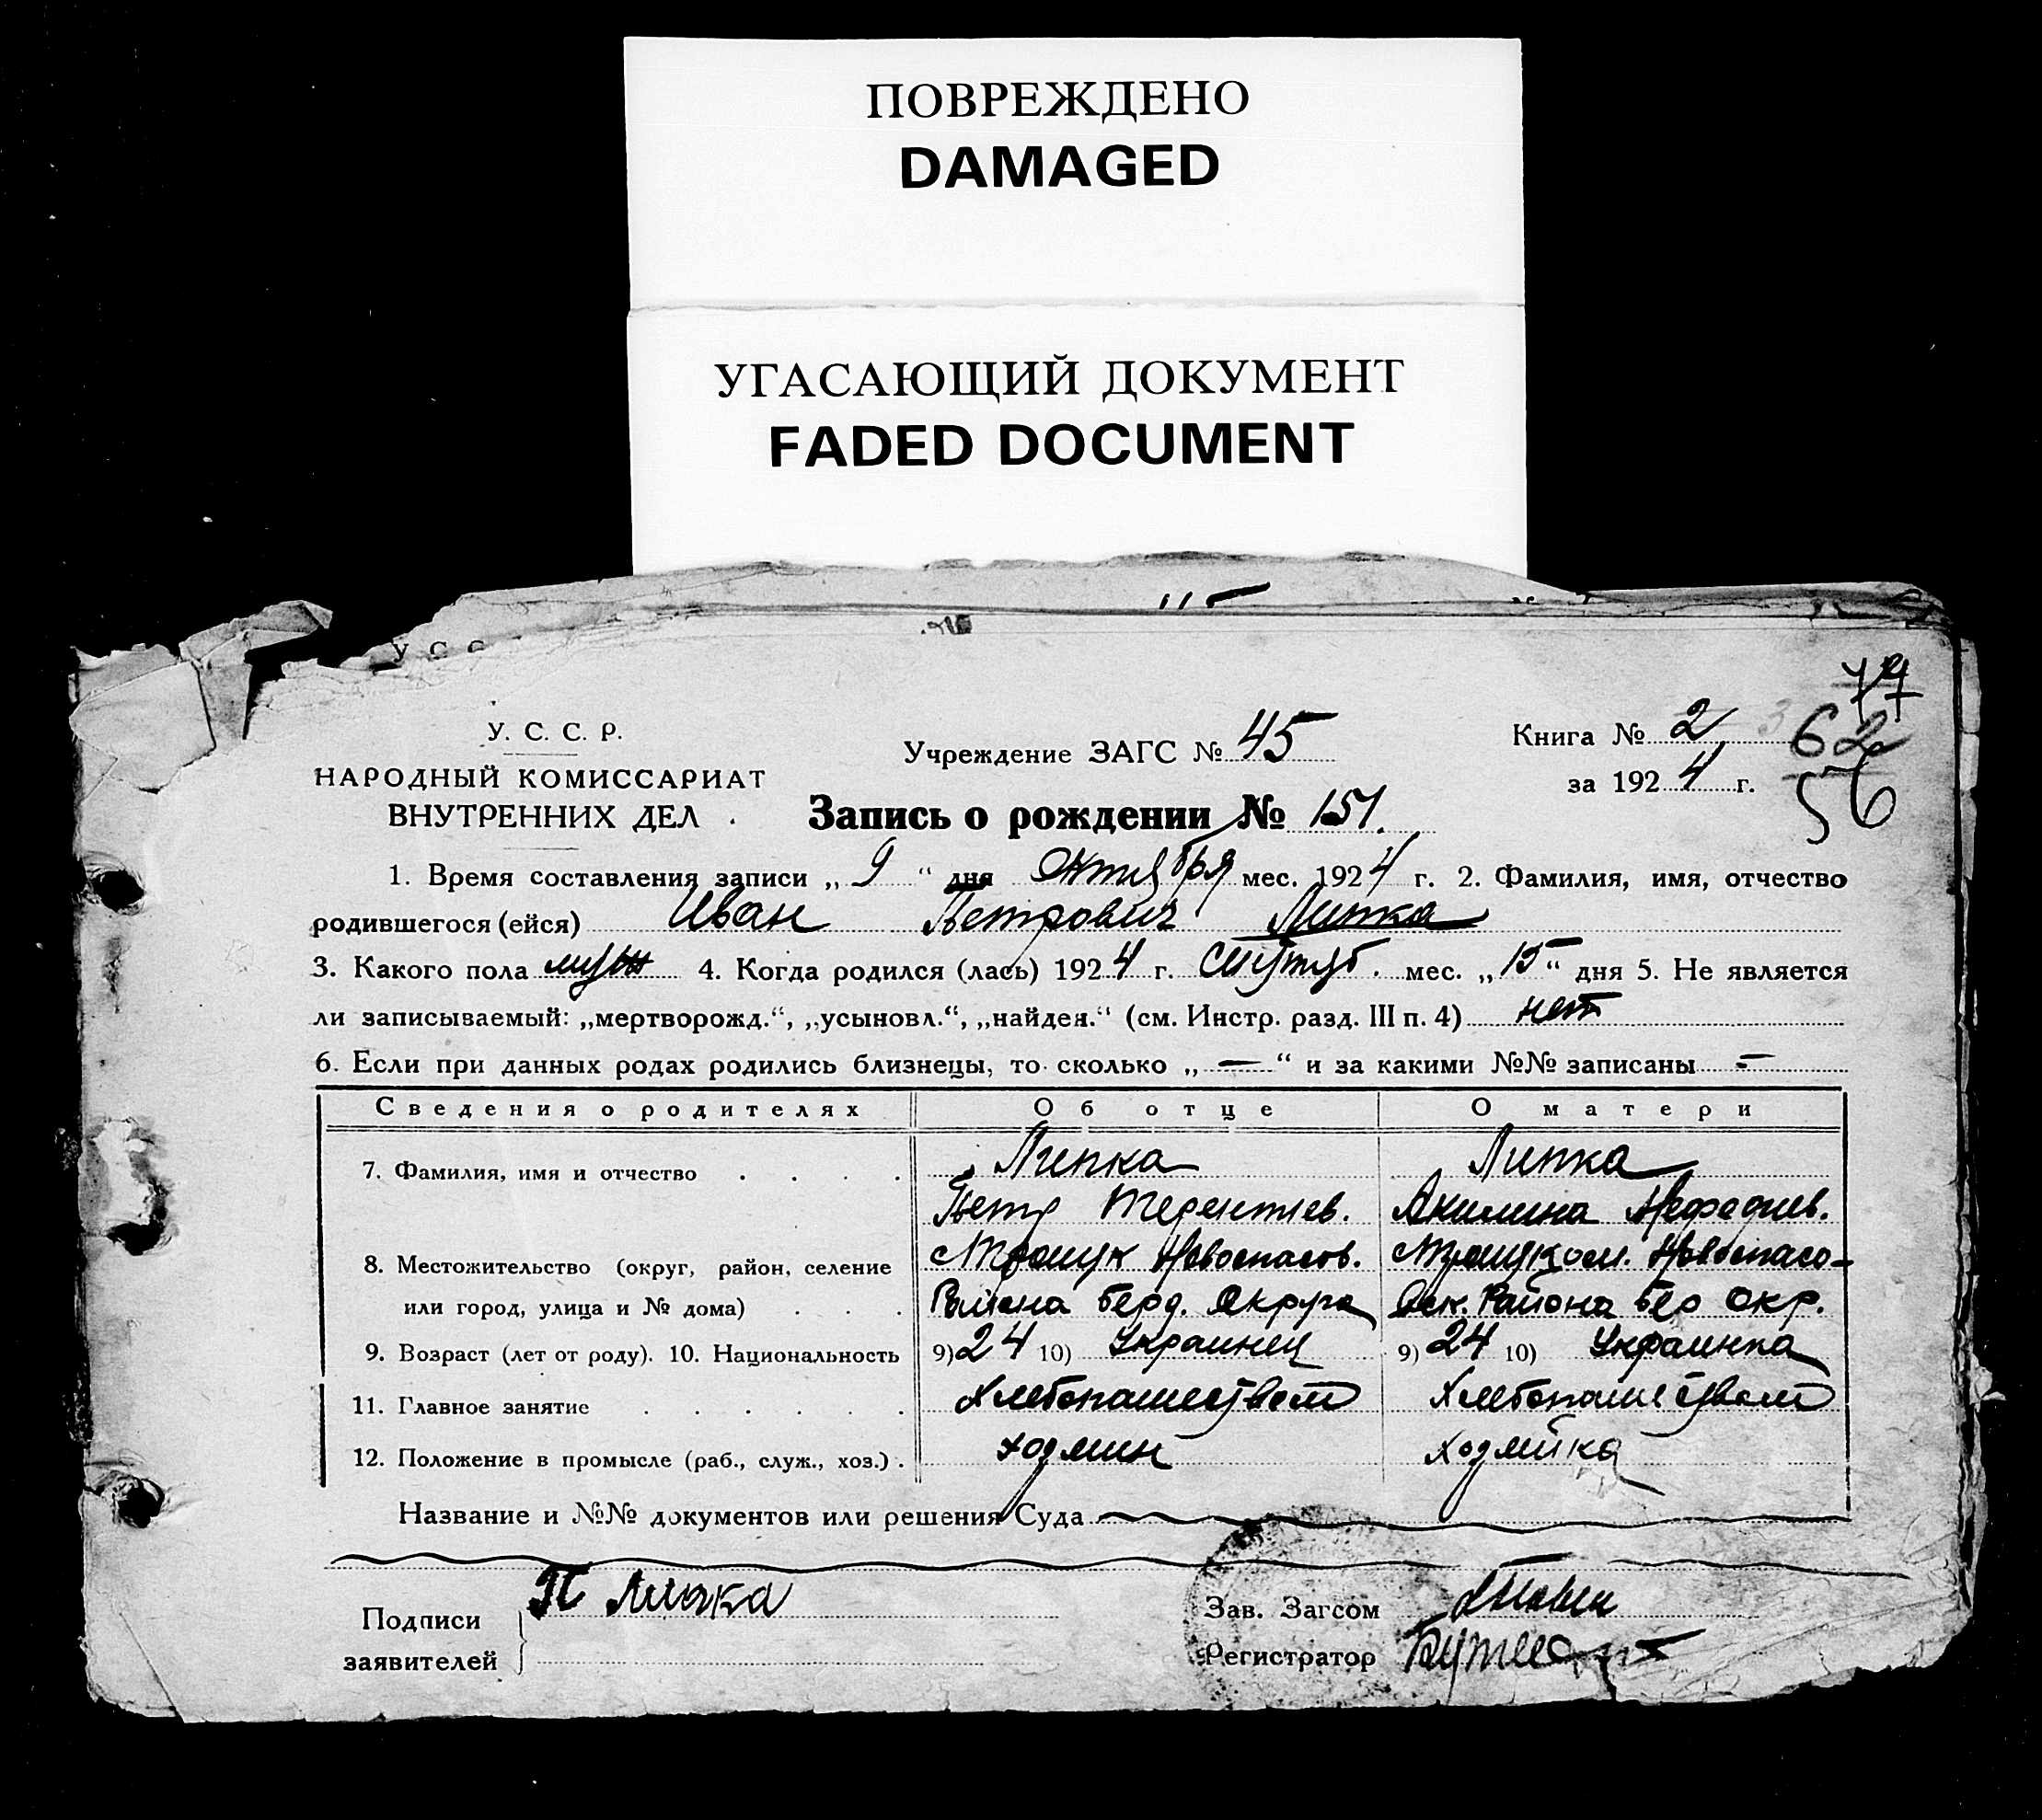 ПОВРЕЖДЕНО
DAMAGED
УГАСАЮЩИЙ ДОКУМЕНТ
FADED DOCUMENT
У С С
79
У. С. С. Р.
НАРОДНЫЙ КОМИССАРИАТ
ВНУТРЕННИХ ДЕЛ
Учреждение ЗАГС № 45
Книга № 2
62
за 1924 г.
56
Запись о рождении № 151.
1. Время составления записи „ 9 “ дня Октября мес. 1924 г. 2. Фамилия, имя, отчество
родившегося (ейся) Иван Петрович Липка
3. Какого пола муж 4. Когда родился (лась) 1924 г. мес. „15“ дня 5. Не является
ли записываемый: „мертворожд.“, „усыновл.“, „найден.“ (см. Инстр. разд. III п. 4) нет
6. Если при данных родах родились близнецы, то сколько „ — “ и за какими №№ записаны —
Сведения о родителях Об отце О матери
7. Фамилия, имя и отчество . . . . Липка Липка
Петр Терентиев. Акилина Мефодиев.
8. Местожительство (округ, район, селение Новоспасов. Новоспасо-
или город, улица и № дома) . . . Района Берд. Округа вск. Района Бер Окр.
9. Возраст (лет от роду). 10. Национальность 9) 24 10) Украинец 9) 24 10) Украинка
11. Главное занятие . . . . . . Хлебопашеством Хлебопашеством
12. Положение в промысле (раб., служ., хоз.) . хозяин хозяйка
Название и №№ документов или решения Суда
Подписи заявителей П Липка
Зав. Загсом
Регистратор